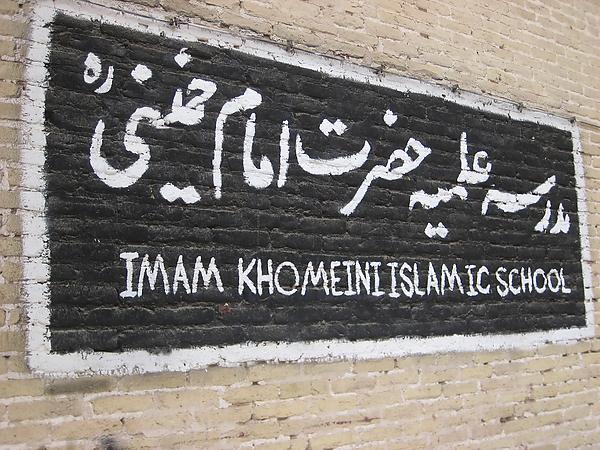 مدرسه علمیه حضرت امام خمینی ره
IMAM KHOMEINI ISLAMIC SCHOOL